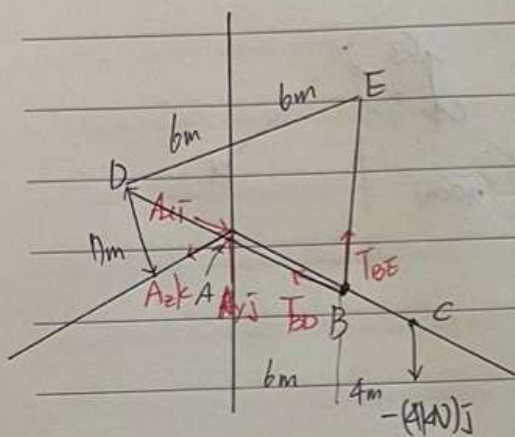 E
6m
6m
D
Axi
7m
Azk
A
Ayj
TBD
TBE
B
C
6m
4m
-(4kN)j